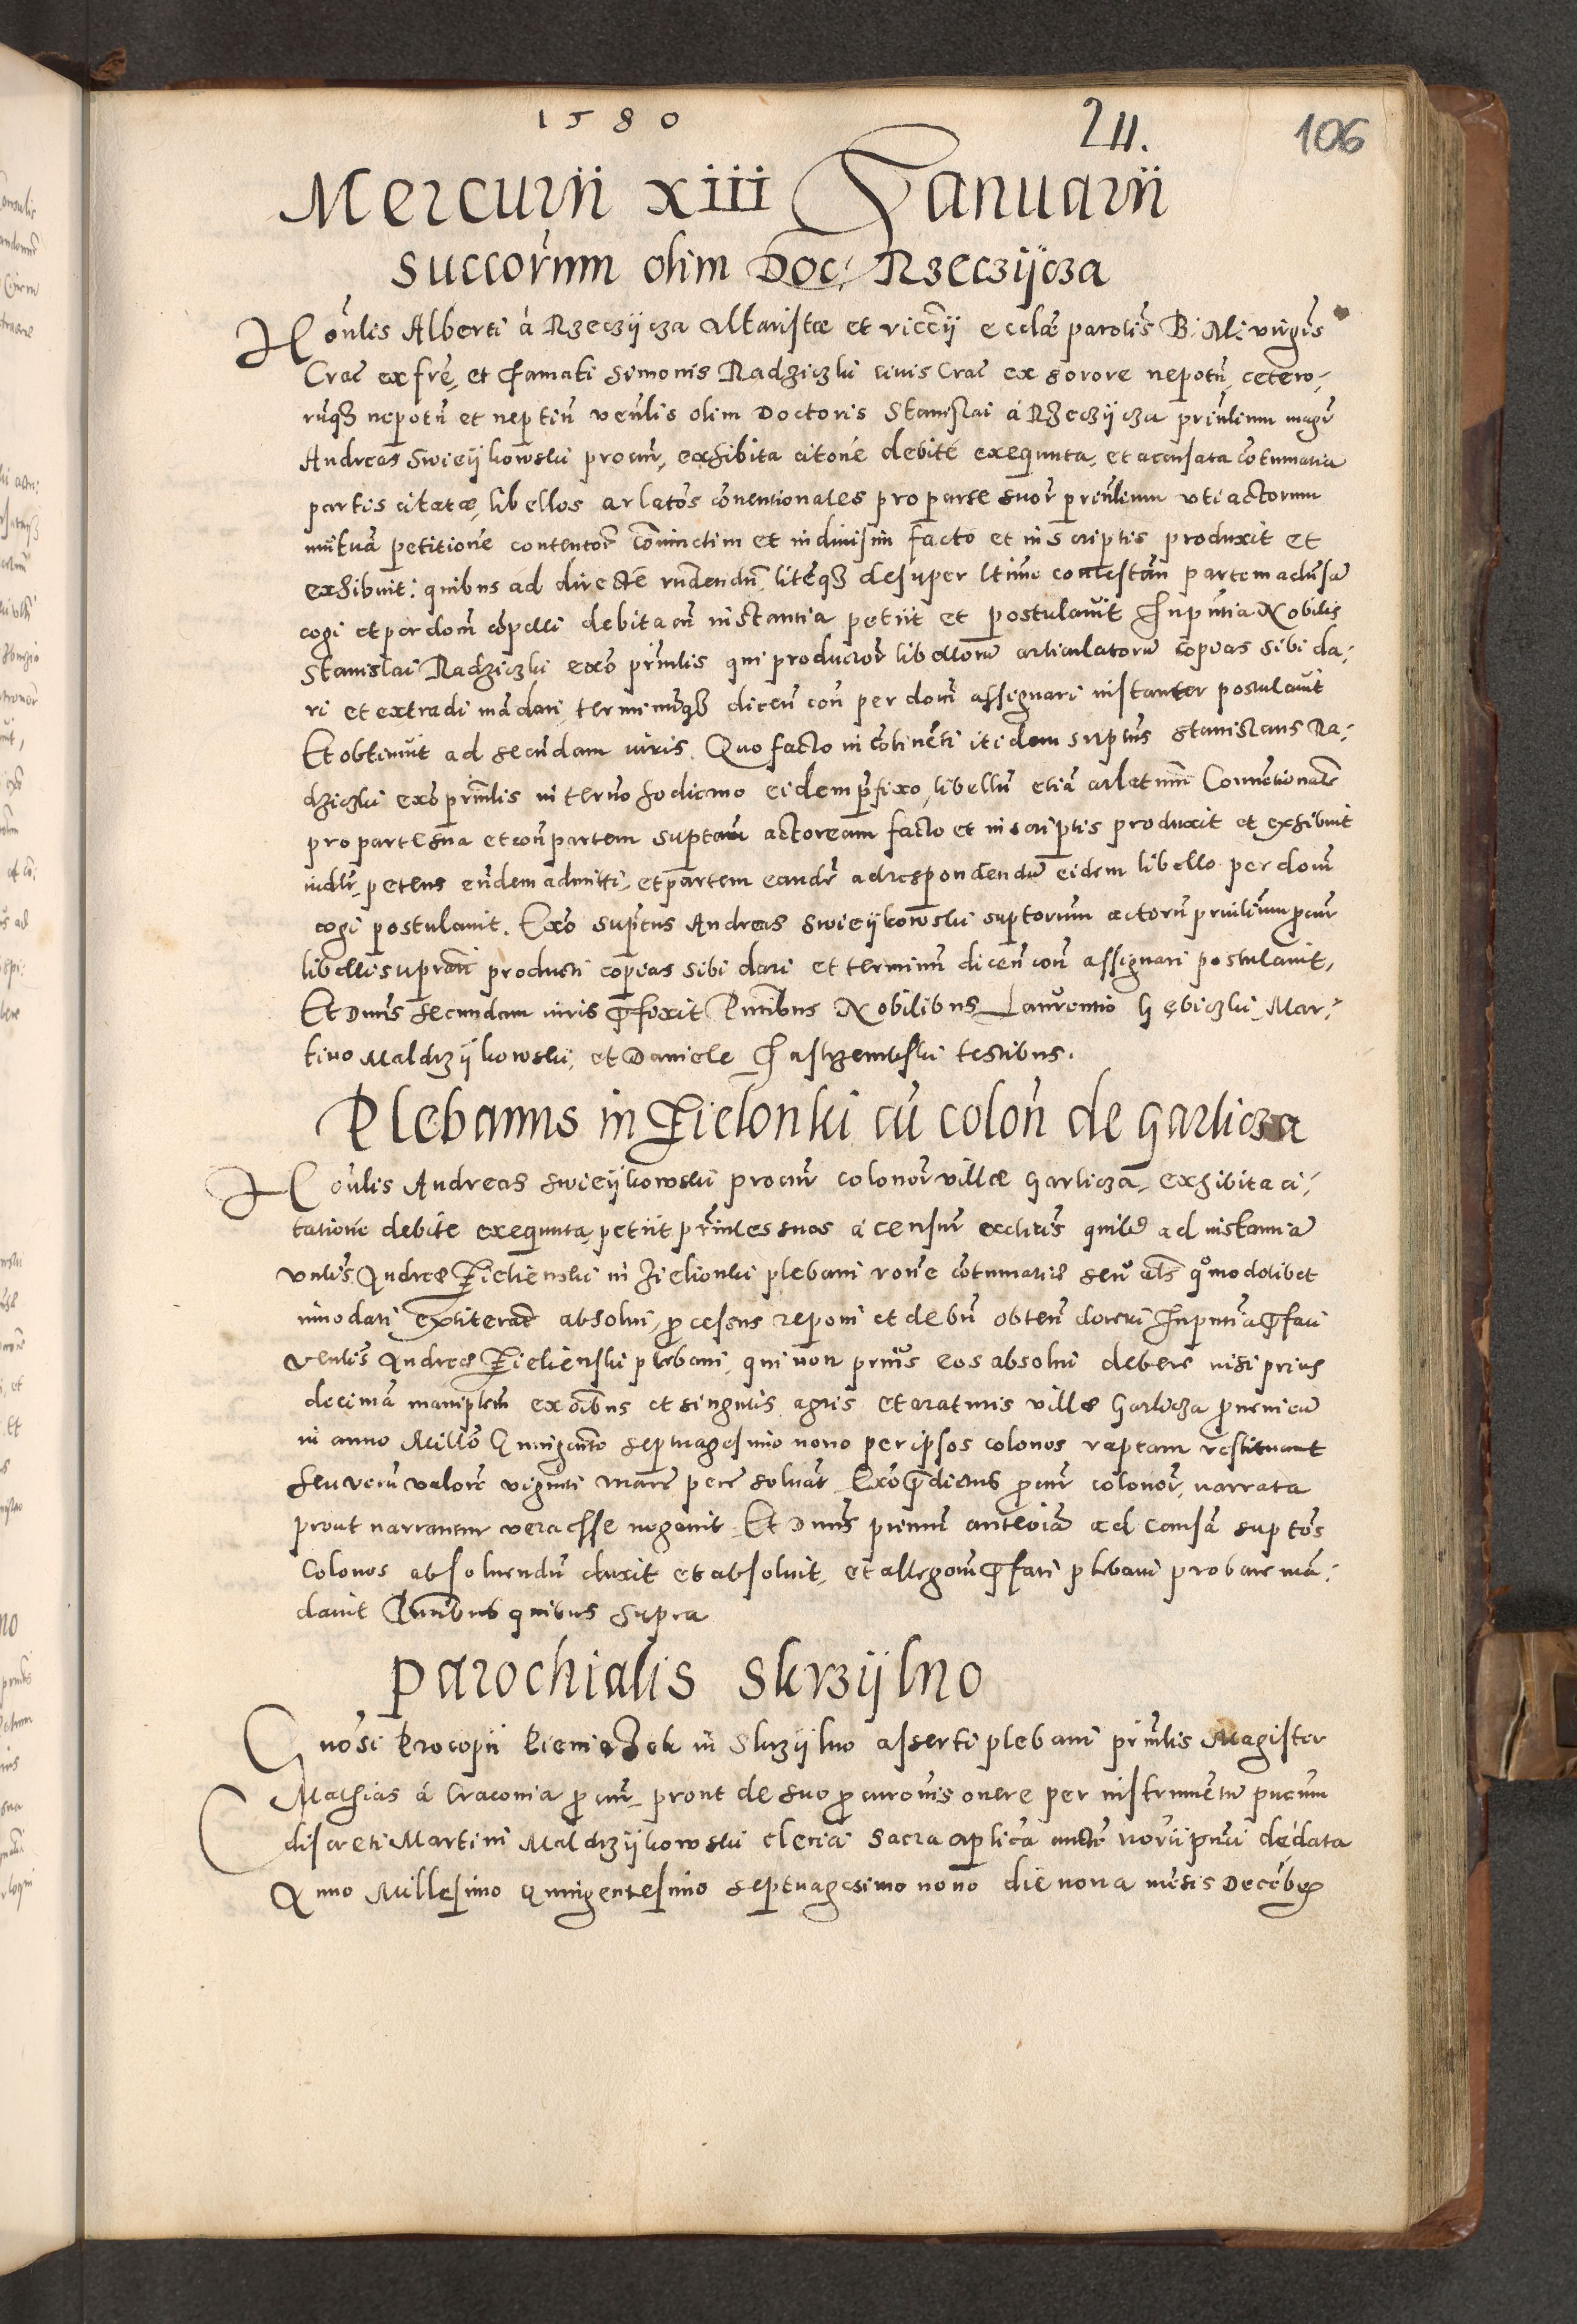 1580
211.
106
Mercurii xiii Januarii
Succorum olim Doc: Rzeczijcza
Honlis Alberti á Rzeczijcza Altaristæ et viccij ecclæ parolis B: M: virgis
Crac ex fre, et famati Simonis Radziczki civis Crac ex sorore nepotu, cetero,
rumq3 nepotu et neptiu venlis olim Doctoris Stanislai á Rzeczijcza prinlium magr
Andreas Swieijkowski procur, exhibita citone debite exequuta, et accusata cotumatia
partis citatæ, libellos arlatos conventionales pro parte suor prinlium uti actorum
mutua petitione contentor coniunctim et indivisim facto et in scriptis produxit et
exhibuit: quibus ad directe rndendu, liteq3 desuper ltime contestan partem adversa
cogi et per dom copelli debita cu instantia petiit et postulavit In pntia Nobilis
Stanislai Radziczki exo prinlis qui productor libellorum articulatoru copias sibi da,
ri et extradi madari, terminuq3 dicen con per dom assignari instanter postulavit
Et obtinuit ad secundam iuris. Quo facto in cotineti itidem suptus Stanislaus Ra,
dziczki exo prinlis in terno hodierno eidem pfixo, libellu etia arlatum Conventionale
pro parte sua et con partem suptam actoream facto et in scriptis produxit et exhibuit
petens eudem admitti, et partem eandem ad respondendu eidem libello per dom
cogi postulavit. Exo suptus Andreas Swieijkowski suptorum actoru prinlium pcur
libelli suprati producti copias sibi dari et terminu dicen con assignari postulavit,
Et Dnus secundam iuris pfixit Pntibus Nobilibus Laurentio Gębiczki, Mar,
tino Maldrzijkowski, et Daniele Jastrzembski testibus.
Plebanus in Zielonki cu colon de Garlicza
Honlis Andreas Swieijkowski procur colonor villæ Garlicza, exhibita ci,
tatione debite exequuta, petiit prinles suos á censur ecclicis quib9 ad instantia
venlis Andreæ Zielienski in Zielionki plebani rone cotumatiæ seu als quomodolibet
innodati extiterant absolvi, pcessus reponi et debu obten doceri In pntia pfati
venlis Andreæ Zielienski plebani, qui non prius eos absolvi debere nisi prius
decima maniplem ex oibus et singulis agris et araturis villæ Garlicza pvenicu
in anno Millo Quingento septuagesimo nono per ipsos colonos raptam restituant
seu veru valore viginti marc pecu solvat Exo pdictus pcur colonor, narrata
prout narrantur vera esse negavit. Et Dnus primum anteoia ad causa suptos
Colonos absolvendu duxit et absolvit, et allegom pfati plebani probare ma,
davit Pntibus quibus supra
Parochialis Skrzijlno
Gnosi Procopii Pieniążek in Skrzijlno asserti plebani prinlis Magister
Mathias á Craconia pcur, prout de suo pcuronis onere per instrumentu pucum
discreti Martini Maldrzijkowski clerici Sacra aplica aucte norii pnci de data
Anno Millesimo Quingentesimo septuagesimo nono die nona mesis Decebr